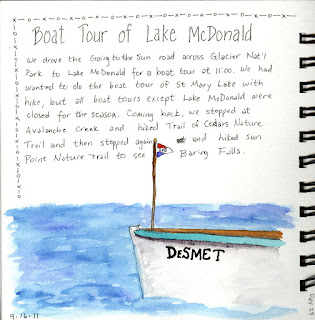 Boat Tour of Lake McDonald
We drove the Going to the Sun road across Glacier Nat'l
Park to Lake McDonald for a boat tour at 11:00. We had
wanted to do the boat tour of St Mary Lake with
hike, but all boat tours except Lake McDonald were
closed for the season. Coming back, we stopped at
Avalanche Creek and hiked Trail of Cedars Nature
Trail and then stopped again and hiked Sun
Point Nature Trail to see Baring Falls.
DESMET
9.16.11